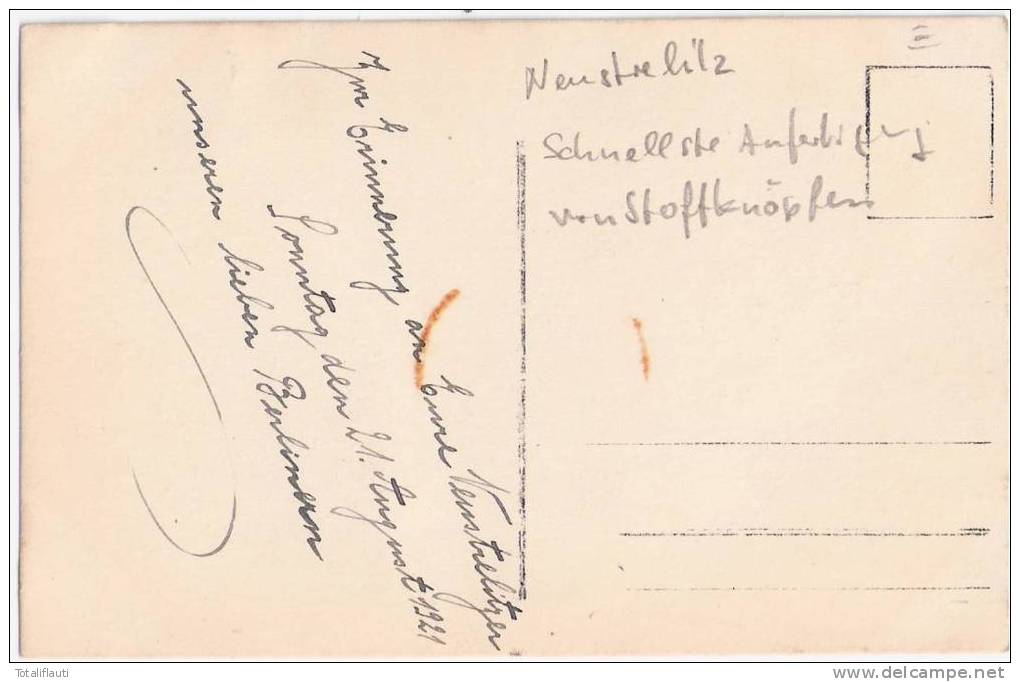 Zur Erinnerung an Eure Neustrelitzer
Sonntag den 21. August 1921
unseren lieben Berlinern
Neustrelitz
Schnellste Anfertigung
von Stoffknöpfen
Totaliflauti
www.delcampe.net